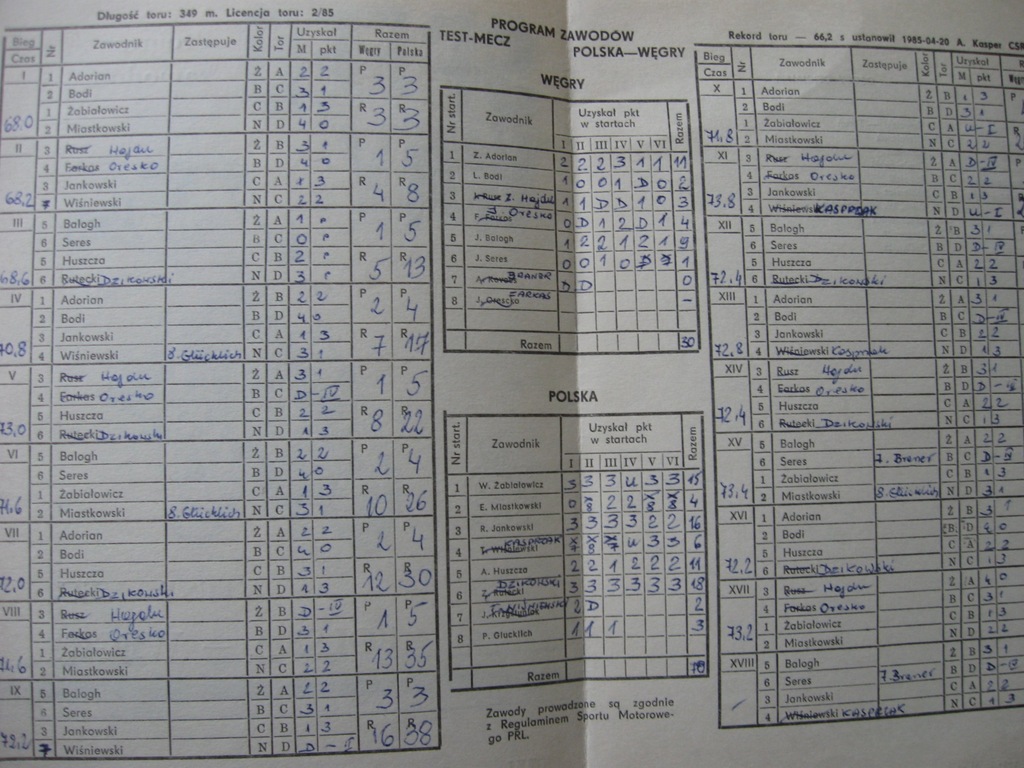 Długość toru: 349 m. Licencja toru: 2/85
Bieg Czas Nr Zawodnik Zastępuje Kolor Tor Uzyskał M pkt Razem Węgry Polska
I 1 Adorian Ż A 2 2 P 3 P 3
2 Bodi B C 3 1
1 Żabiałowicz C B 1 3 R 3 R 3
68.0 2 Miastkowski N D 4 0
II 3 Rusz Hajdu Ż B 3 1 P 1 P 5
4 Farkas Oresko B D 4 0
3 Jankowski C A 1 3 R 4 R 8
68,2 7 Wiśniewski N C 2 2
III 5 Balogh Ż A 1 P 1 P 5
6 Seres B C 0
5 Huszcza C B 2 R 5 R 13
68,6 6 Rutecki Dzikowski N D 3
IV 1 Adorian Ż B 2 2 P 2 P 4
2 Bodi B D 4 0
3 Jankowski C A 1 3 R 7 R 17
70,8 4 Wiśniewski 8. Glücklich N C 3 1
V 3 Rusz Hajdu Ż A 3 1 P 1 P 5
4 Farkas Oresko B C D-IV
5 Huszcza C B 2 2 R 8 R 22
73,0 6 Rutecki Dzikowski N D 1 3
VI 5 Balogh Ż B 2 2 P 2 P 4
6 Seres B D 4 0
1 Żabiałowicz C A 1 3 R 10 R 26
71.6 2 Miastkowski 8. Glücklich N C 3 1
VII 1 Adorian Ż A 2 2 P 2 P 4
2 Bodi B C 4 0
5 Huszcza C B 3 1 R 12 R 30
72.0 6 Rutecki Dzikowski N D 1 3
VIII 3 Rusz Hajdu Ż B D-IV P 1 P 5
4 Farkas Oresko B D 3 1
1 Żabiałowicz C A 1 3 R 13 R 35
74.6 2 Miastkowski N C 2 2
IX 5 Balogh Ż A 2 2 P 3 P 3
6 Seres B C 3 1
3 Jankowski C B 1 3 R 16 R 38
72,2 7 Wiśniewski N D D-I
PROGRAM ZAWODÓW
TEST-MECZ POLSKA—WĘGRY
WĘGRY
Nr start. Zawodnik Uzyskał pkt w startach Razem
I II III IV V VI
1 Z. Adorian 2 2 2 3 1 1 11
2 L. Bodi 1 0 0 1 D 0 2
3 Z. Hajdu 1 1 D D 1 0 3
4 F. Farkas J. Oresko 0 D 1 2 D 1 4
5 J. Balogh 1 2 2 1 2 1 9
6 J. Seres 0 0 1 0 1
7 BRANER D D 0
8 J. Orescko FARKAS –
Razem 30
POLSKA
Nr start. Zawodnik Uzyskał pkt w startach Razem
I II III IV V VI
1 W. Żabiałowicz 3 3 3 u 3 3 15
2 E. Miastkowski 0 8 2 2 8 8 4
3 R. Jankowski 3 3 3 3 2 2 16
4 KASPRZAK 8 u 3 3 6
5 A. Huszcza 2 2 1 2 2 2 11
6 Z. Rutecki DZIKOWSKI 3 3 3 3 3 3 18
7 WIŚNIEWSKI 2 D 2
8 P. Glucklich 1 1 1 3
Razem
Zawody prowadzone są zgodnie
z Regulaminem Sportu Motorowe-
go PRL.
Rekord toru — 66,2 s ustanowił 1985-04-20 A. Kasper CSR
Bieg Czas Nr Zawodnik Zastępuje Kolor Tor Uzyskał M pkt
X 1 Adorian Ż B 1 3
2 Bodi B D 3 1
1 Żabiałowicz C A u-I
71.8 2 Miastkowski N C 2 2
XI 3 Rusz Hajdu Ż A D-IV
4 Farkas Oresko B C 2 2
3 Jankowski C B 1 3
73.8 4 Wiśniewski KASPRZAK N D u-I
XII 5 Balogh Ż B 3 1
6 Seres B D D-IV
5 Huszcza C A 2 2
72.4 6 Rutecki Dzikowski N C 1 3
XIII 1 Adorian Ż A 3 1
2 Bodi B C D-IV
3 Jankowski C B 2 2
72.8 4 Wiśniewski Kasprzak N D 1 3
XIV 3 Rusz Hajdu Ż B 3 1
4 Farkas Oresko B D D-IV
5 Huszcza C A 2 2
72,4 6 Rutecki Dzikowski N C 1 3
XV 5 Balogh Ż A 2 2
6 Seres 7. Braner B C D-IV
1 Żabiałowicz C B 1 3
73,4 2 Miastkowski 8. Glücklich N D 3 1
XVI 1 Adorian Ż B 3 1
2 Bodi B D 4 0
5 Huszcza C A 2 2
72.2 6 Rutecki Dzikowski N C 1 3
XVII 3 Rusz Hajdu Ż A 4 0
4 Farkas Oresko B C 3 1
1 Żabiałowicz C B 1 3
73,2 2 Miastkowski N D 2 2
XVIII 5 Balogh Ż B 3 1
6 Seres 7. Braner B D D-IV
3 Jankowski C A 2 2
4 Wiśniewski KASPRZAK N C 1 3